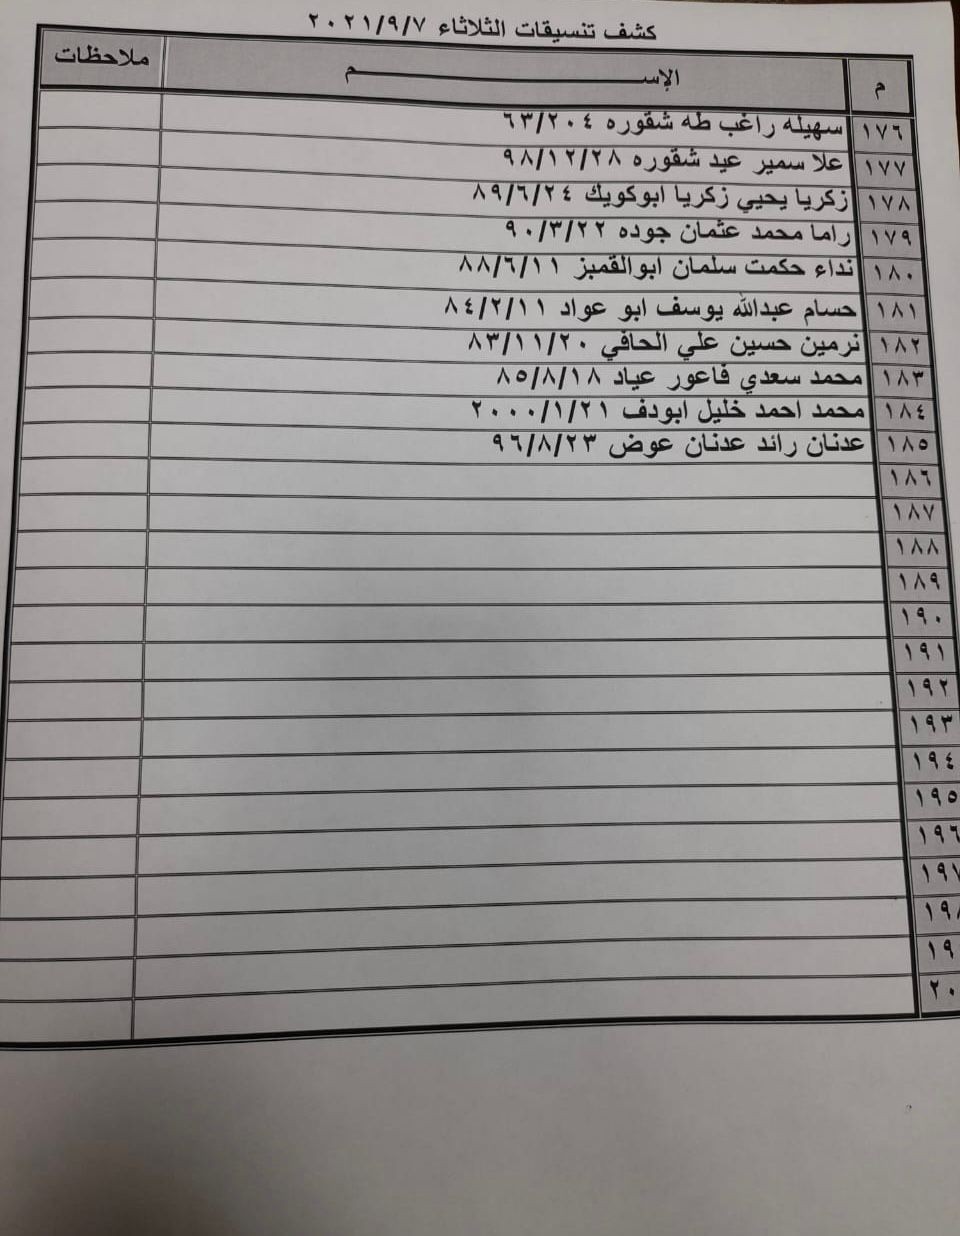 كشف تنسيقات الثلاثاء ٢٠٢١/٩/٧
م الإســـــــــم ملاحظات
١٧٦ سهيله راغب طه شقوره ٦٣/٢٠٤
١٧٧ علا سمير عيد شقوره ٩٨/١٢/٢٨
١٧٨ زكريا يحيي زكريا ابوكويك ٨٩/٦/٢٤
١٧٩ راما محمد عثمان جوده ٩٠/٣/٢٢
١٨٠ نداء حكمت سلمان ابوالقمبز ٨٨/٦/١١
١٨١ حسام عبدالله يوسف ابو عواد ٨٤/٢/١١
١٨٢ نرمين حسين علي الحافي ٨٣/١١/٢٠
١٨٣ محمد سعدي فاعور عياد ٨٥/٨/١٨
١٨٤ محمد احمد خليل ابودف ٢٠٠٠/١/٢١
١٨٥ عدنان رائد عدنان عوض ٩٦/٨/٢٣
١٨٦
١٨٧
١٨٨
١٨٩
١٩٠
١٩١
١٩٢
١٩٣
١٩٤
١٩٥
١٩٦
١٩٧
١٩٨
١٩
٢٠